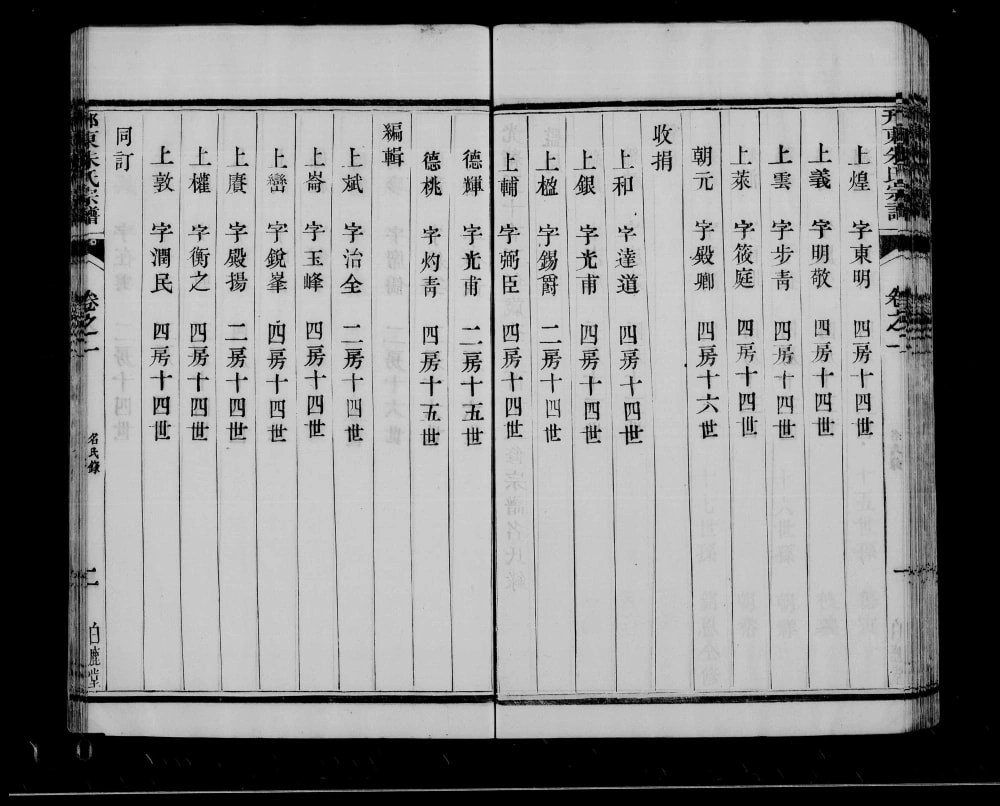 東朱氏宗譜
卷之一
上煌 字東明 四房十四世
上義 字明敬 四房十四世
上雲 字步青 四房十四世
上萊 字筱庭 四房十四世
朝元 字殿卿 四房十六世
收捐
上和 字達道 四房十四世
上銀 字光甫 四房十四世
上楹 字錫爵 二房十四世
上輔 字弼臣 四房十四世
德輝 字光甫 二房十五世
德桃 字灼青 四房十五世
編輯
上斌 字治全 二房十四世
上崙 字玉峰 四房十四世
上巒 字銳峯 四房十四世
上賡 字殿揚 二房十四世
上權 字衡之 四房十四世
上敦 字潤民 四房十四世
同訂
東朱氏宗譜 卷之一 名氏錄 二 白鹿堂